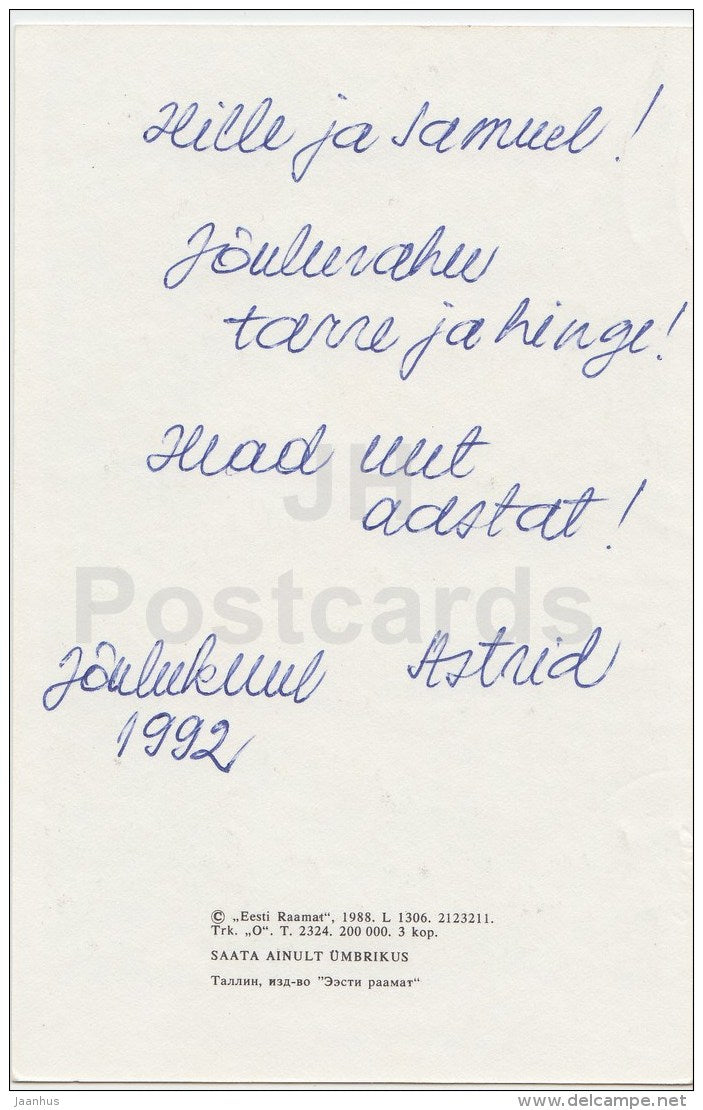 Hille ja Samuel!
Jõulurahu
tarre ja hinge!
Head uut
aastat!
Jõulukuul Astrid
1992
JH
Postcards
© „Eesti Raamat“, 1988. L 1306. 2123211.
Trk. „O“. T. 2324. 200 000. 3 kop.
SAATA AINULT ÜMBRIKUS
Таллин, изд-во "Ээсти раамат"
jaanhus
delcampe.net